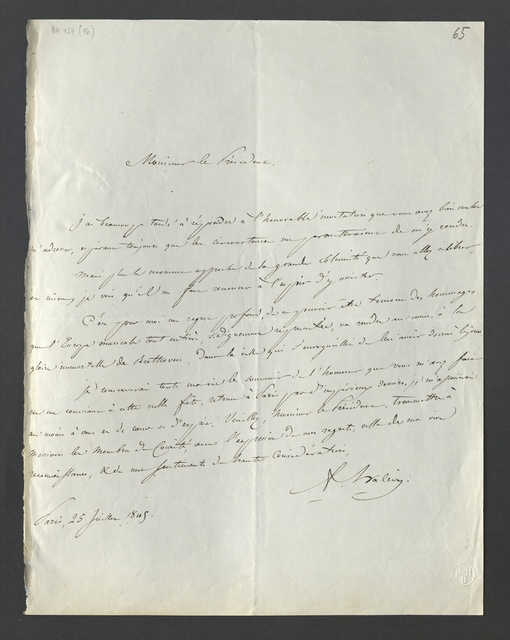 65
Monsieur le Président.
j'ai beaucoup tardé à répondre à l'honorable invitation que vous avez bien voulu
m'adresser, espérant toujours que les circonstances me permettraient de m'y rendre.
Mais plus le moment approche de la grande solennité que vous allez célébrer,
et mieux je vois qu'il me faut renoncer à l'espoir d'y assister.
C'est pour moi un regret profond, de ne pouvoir être témoin des hommages
que l'Europe musicale tout entière, si dignement représentée, va rendre avec vous, à la
gloire immortelle de Beethoven. dans la ville qui s'enorgueillit de lui avoir donné le jour.
je conserverai toute ma vie le souvenir de l'honneur que vous m'avez fait
en me conviant à cette noble fête. retenu à Paris par d'impérieux devoirs, je m'associerai
au moins à vous de cœur et d'esprit. Veuillez, Monsieur le Président, transmettre à
messieurs les Membres du Comité, avec l'expression de mes regrets, celle de ma vive
reconnaissance, & de mes sentiments de haute considération.
F. Halévy.
Paris, 25 juillet 1845.